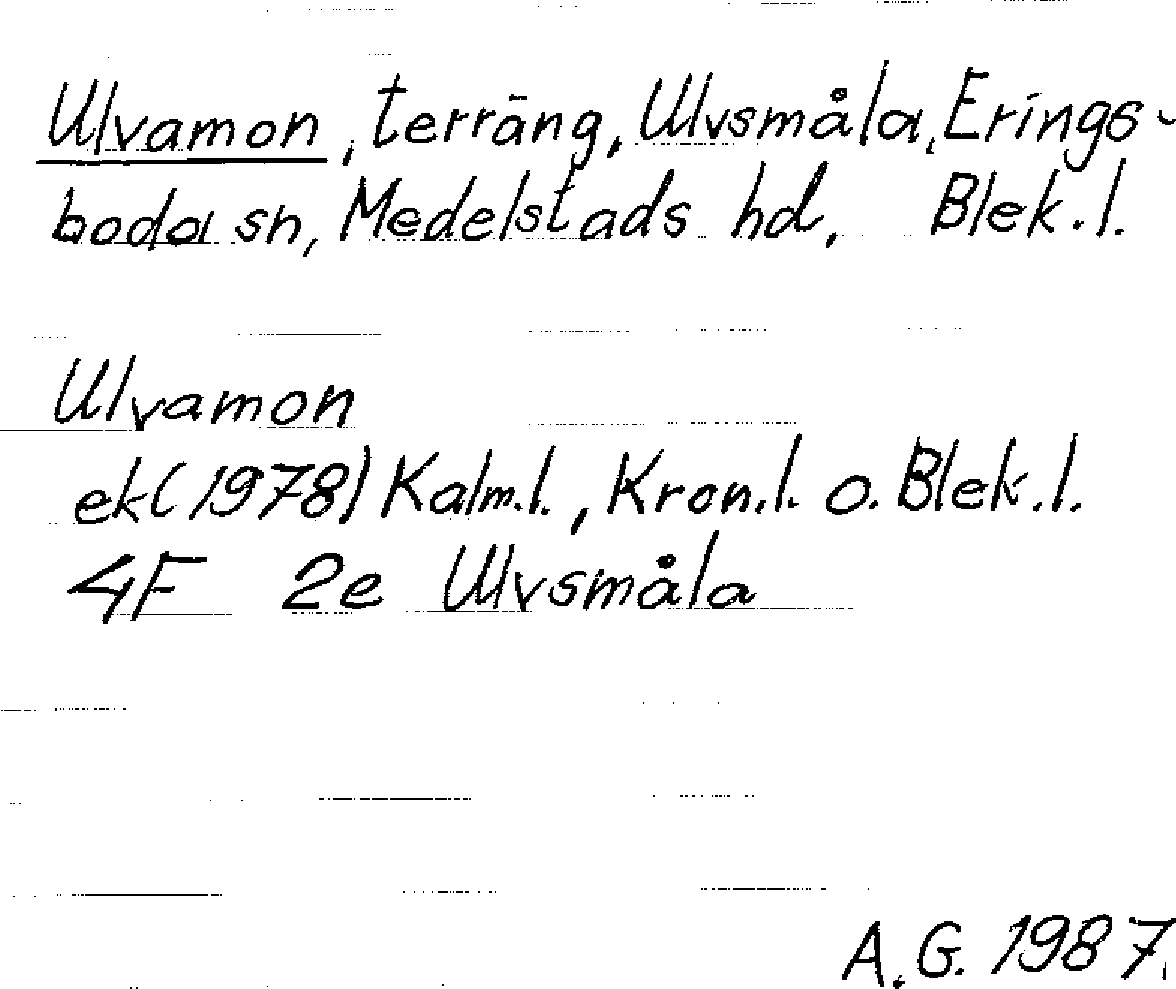 Ulvamon, terräng, Ulvsmåla, Erings-
boda sn, Medelstads hd, Blek.l.
Ulvamon
ek (1978) Kalm.l., Kron.l. o. Blek.l.
4F 2e Ulvsmåla
A.G. 1987.